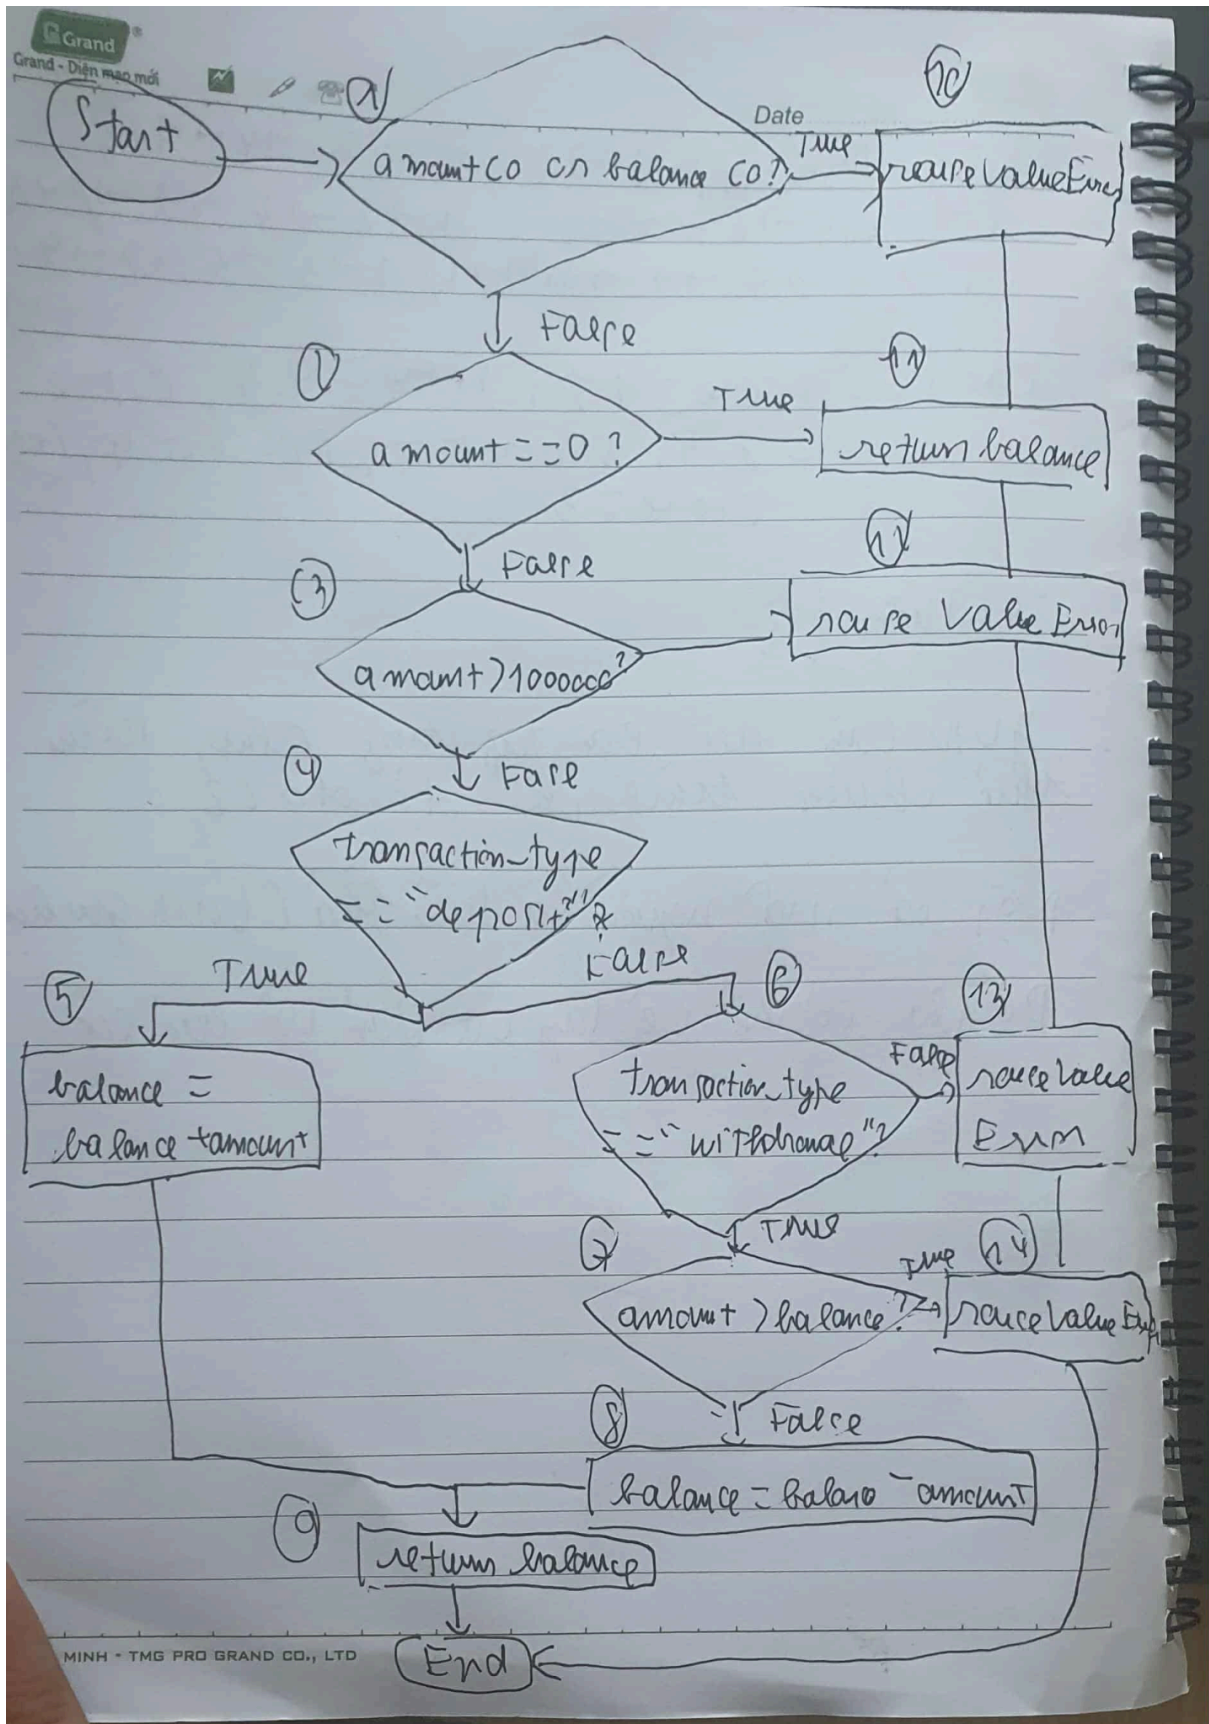 Grand
Grand - Diện mạo mới
Date
Start
1
amount<0 or balance <0?
True
10
raise ValueError
False
2
amount==0?
True
11
return balance
False
3
amount>1000000?
12
raise ValueError
False
4
transaction_type
=="deposit"?
True
False
5
balance =
balance +amount
6
transaction_type
=="withdrawal"?
False
13
raise Value
Error
True
7
amount >balance?
True
14
raise ValueError
False
8
balance = balance - amount
9
return balance
End
MINH - TMG PRO GRAND CO., LTD